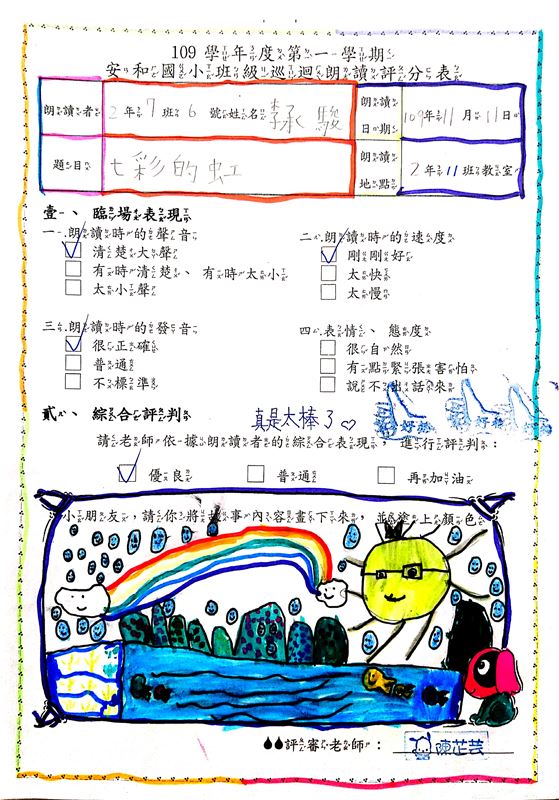 109 學年度第一學期
安和國小班級巡迴朗讀評分表
朗讀者 2年7班6號姓名 李承駿 朗讀日期 109年11月11日
題目 七彩的虹 朗讀地點 2年11班教室
壹、臨場表現
一.朗讀時的聲音 二.朗讀時的速度
清楚大聲 剛剛好
有時清楚、有時太小 太快
太小聲 太慢
三.朗讀時的發音 四.表情、態度
很正確 很自然
普通 有點緊張害怕
不標準 說不出話來
貳、綜合評判 真是太棒了♡ 好棒 好棒
請老師依據朗讀者的綜合表現，進行評判：
優良 普通 再加油
小朋友，請你將故事內容畫下來，並塗上顏色
評審老師： 陳芷芸